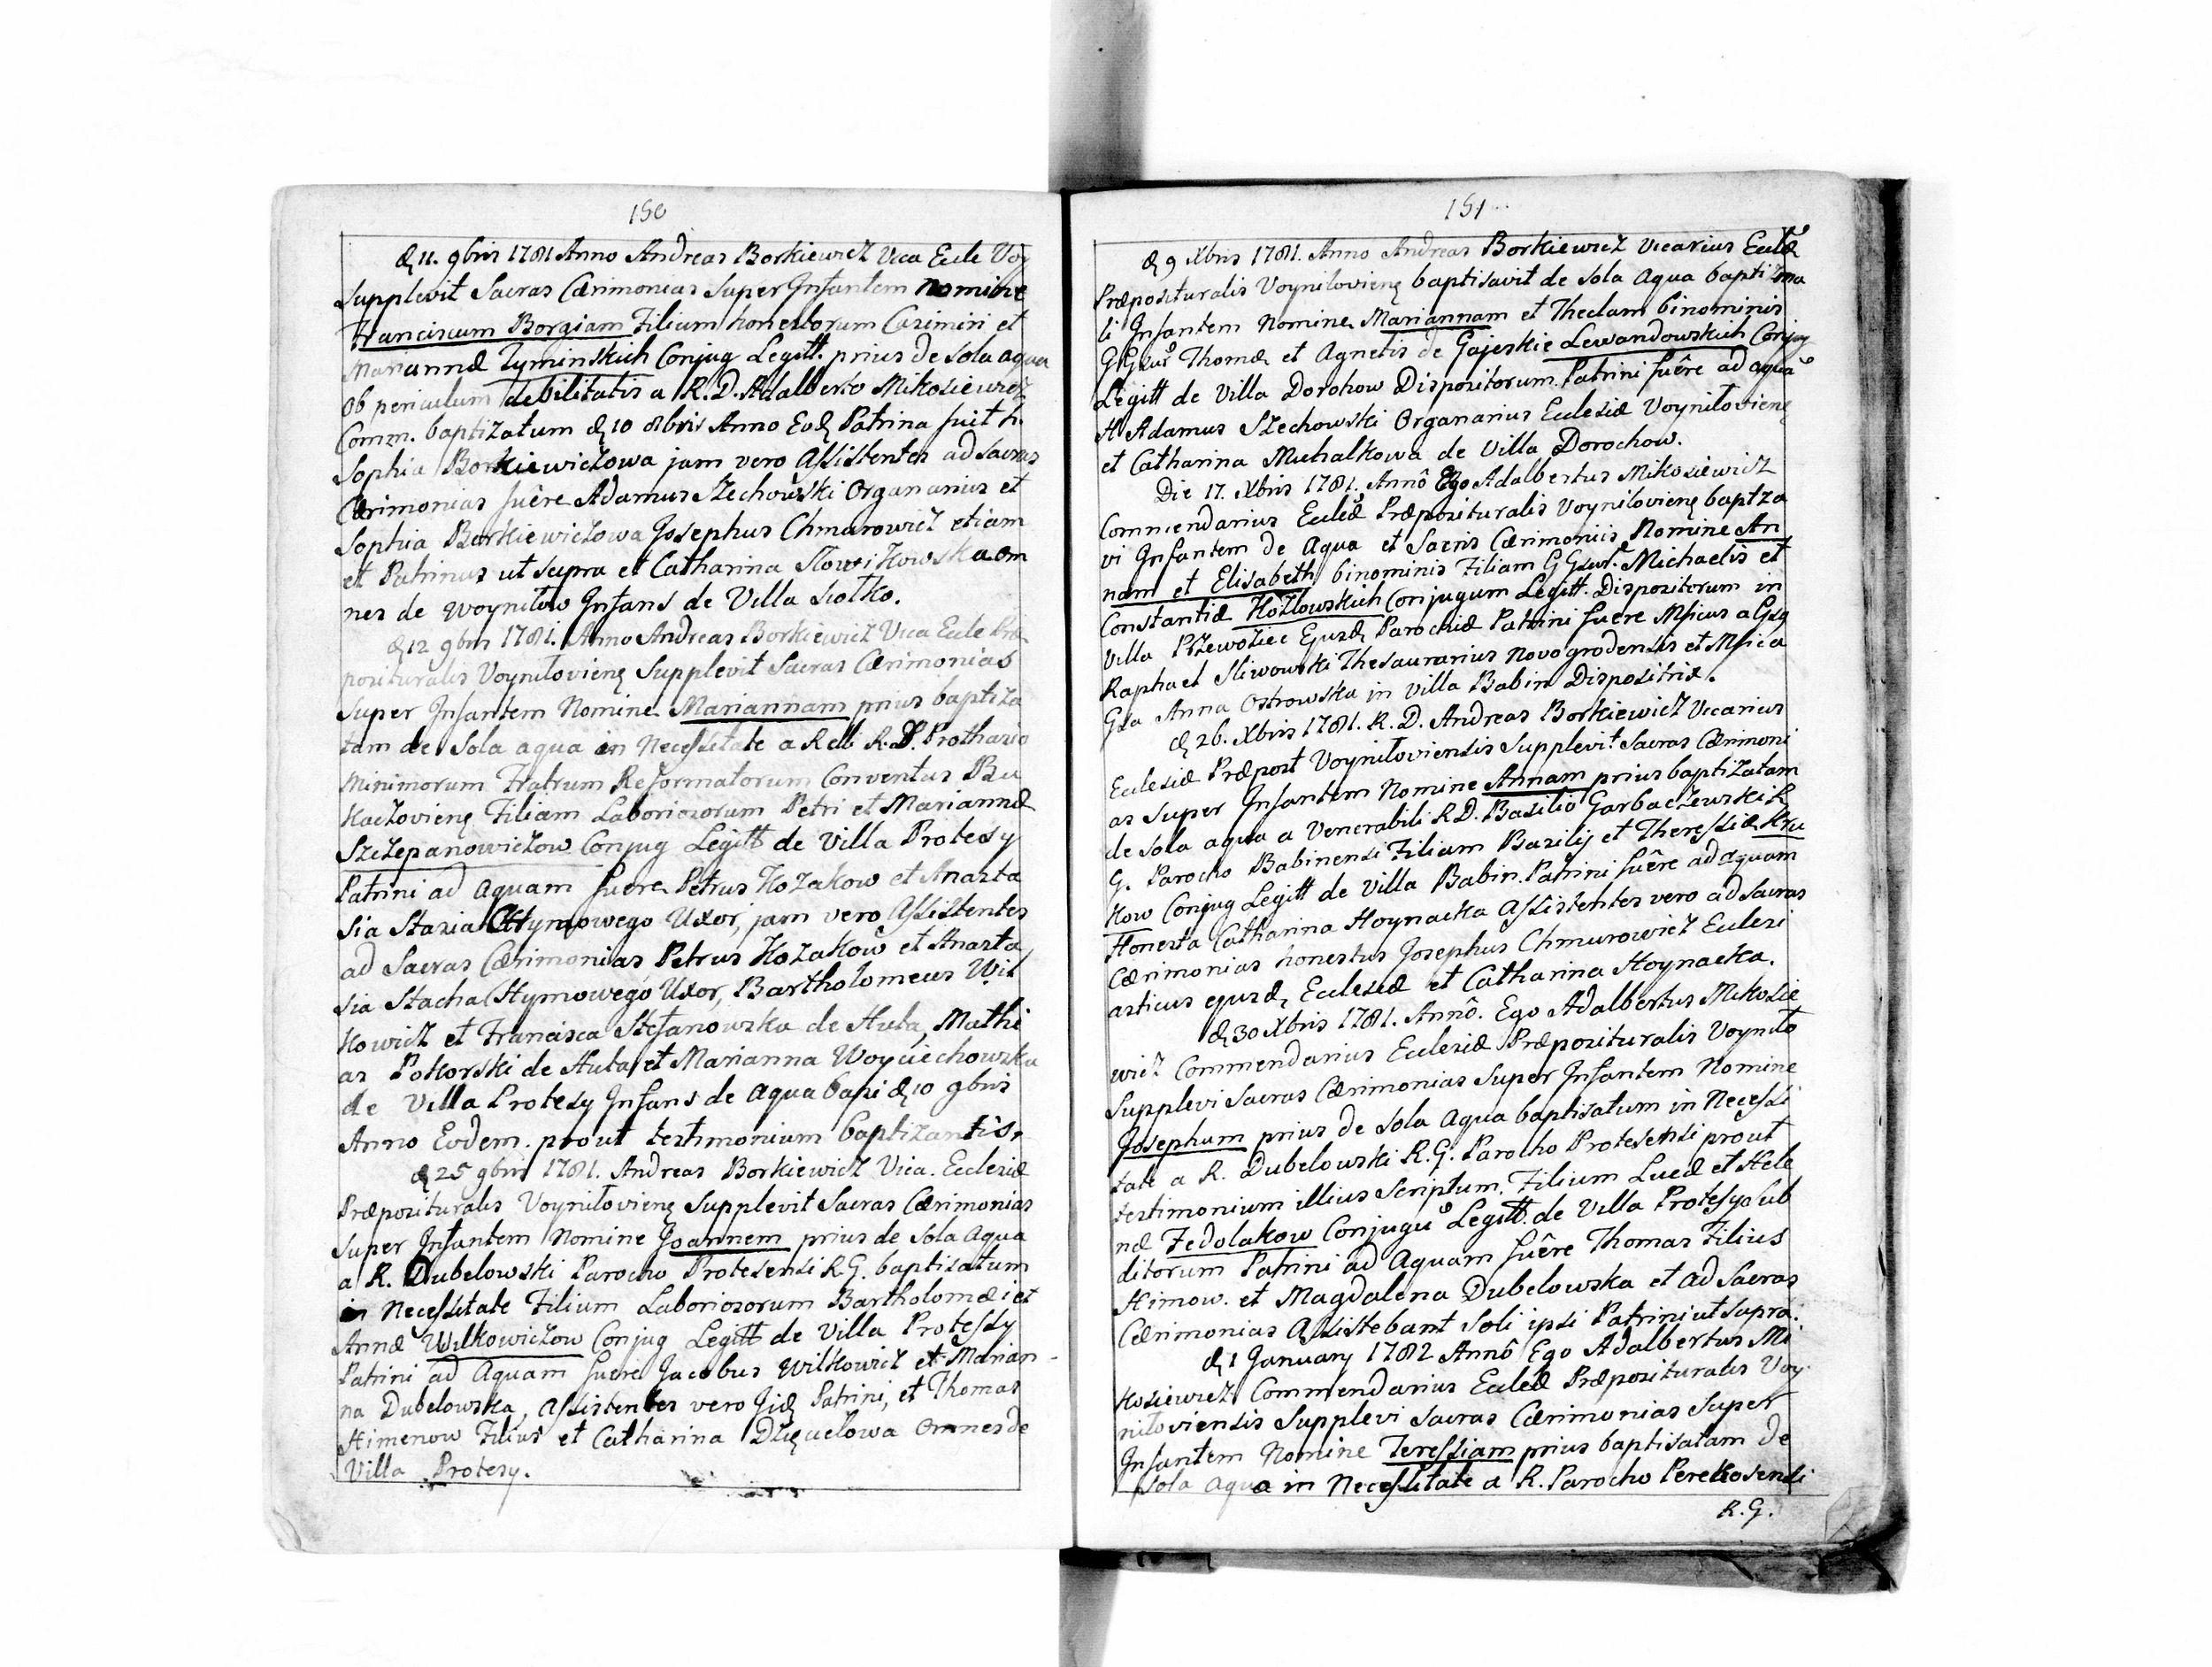 150
d 11. 9bris 1781 Anno Andreas Borkiewicz Vica Eccle Voy
Supplevit Sacras Cærimonias super Infantem nomine
Franciscum Borgiam Filium honestorum Casimiri et
Mariannæ Tyminskich Conjug Legitt. prius de sola aqua
ob periculum debilitatis a R. D. Adalberto Mikosiewicz
Comm. baptizatum d 10 8bris Anno Eod Patrina fuit h.
Sophia Borkiewiczowa jam vero Assistentes ad Sacras
Cærimonias fuêre Adamus Szechowski Organarius et
Sophia Borkiewiczowa Josephus Chmurowicz etiam
et Patrinus ut supra et Catharina Słowikowska om
nes de Woyniłow Infans de Villa Siołko.
d 12 9bris 1781. Anno Andreas Borkiewicz Vica Eccle Præ
posituralis Voyniłovien Supplevit Sacras Cærimonias
super Infantem Nomine Mariannam prius baptiza
tam de sola aqua in Necessitate a Relli R. D. Prothasio
Minimorum Fratrum Reformatorum Conventus Bu
kaczovien Filiam Laboriosorum Petri et Mariannæ
Szczepanowiczow Conjug Legitt de Villa Protesy
Patrini ad Aquam fuere Petrus Kozakow et Anasta
sia Stasia Hymowego Uxor, jam vero Assistentes
ad Sacras Cærimonias Petrus Kozakow et Anasta
sia Stacha Hymowego Uxor, Bartholomeus Wil
kowicz et Francisca Stefanowska de Huta, Mathi
as Pokorski de Huta et Marianna Woyciechowska
de Villa Protesy Infans de aqua bapi d 10 9bris
Anno Eodem. prout testimonium baptizantis.
d 25 9bris 1781. Andreas Borkiewicz Vica. Ecclesiæ
Præposituralis Voyniłovien Supplevit Sacras Cærimonias
super Infantem Nomine Joannem prius de sola Aqua
a R. Dubelowski Parocho Protesensi R. G. baptisatum
in Necessitate Filium Laboriosorum Bartholomæi et
Annæ Wilkowiczow Conjug Legitt de Villa Protessy
Patrini ad Aquam fuere Jacobus Wilkowicz et Marian
na Dubelowska, Assistentes vero Jid Patrini, et Thomas
Himenow Filius et Catharina omnes de
Villa Protesy.
151
d 9 Xbris 1781. Anno Andreas Borkiewicz Vicarius Ecclæ
Præposituralis Voyniłovien baptisavit de sola Aqua baptisma
li Infantem Nomine Mariannam et Theclam binominis
GGsur Thomæ et Agnetis de Gajeskie Lewandowskich Conjug
Legitt de Villa Dorohow Dispositorum. Patrini fuêre ad aquã
H Adamus Szechowski Organarius Ecclesiæ Voyniłovien
et Catharina Muhalkowa de Villa Dorochow.
Die 17. Xbris 1781. Annô Ego Adalbertus Mikosiewicz
Commendarius Ecclæ Præposituralis Voyniłovien baptza
vi Infantem de Aqua et Sacris Cærimoniis Nomine An
nam et Elisabeth binominis Filiam GGsur. Michaelis et
Constantiæ Kozłowskich Conjugum Legitt. Dispositorum in
Villa Przewoziec Ejusd Parochiæ Patrini fuere Mficus a Gsq
Raphael Sliwowski Thesaurarius Novogrodensis et Mfica
Gsa Anna Ostrowska in Villa Babin Dispositrix.
d 26. Xbris 1781. R. D. Andreas Borkiewicz Vicarius
Ecclesiæ Præpost Voyniłoviensis Supplevit Sacras Cærimoni
as super Infantem Nomine Annam prius baptizatam
de sola aqua a Venerabili R D. Basilio Garbaczewski R
G. Parocho Babinensi Filiam Basilij et Theressiæ Kru
kow Conjug Legitt de Villa Babin. Patrini fuêre ad Aquam
Honesta Catharina Hoynacka Assistentes vero ad Sacras
Cærimonias honestus Josephus Chmurowicz Eclesi
asticus ejusd, Ecclesiæ et Catharina Hoynacka.
d 30 Xbris 1781. Annô. Ego Adalbertus Mikosie
wicz Commendarius Ecclesiæ Præposituralis Voyniło
Supplevi Sacras Cærimonias super Infantem Nomine
Josephum prius de sola Aqua baptisatum in Necessi
tate a R. Dubelowski R. G. Parocho Protesensi prout
testimonium illius scriptum. Filium Lucæ et Hele
næ Fedolakow Conjugũ Legitt. de Villa Protesy Sub
ditorum Patrini ad Aquam fuêre Thomas Filius
Himow. et Magdalena Dubelowska et ad Sacras
Cærimonias Assistebant soli ipsi Patrini ut supra.
d 1 January 1782 Annô Ego Adalbertus Mi
kosiewicz Commendarius Ecclæ Præposituralis Voy
niłoviensis Supplevi Sacras Cærimonias super
Infantem Nomine Teressiam prius baptisatam de
sola Aqua in Necessitate a R. Parocho Perekosensi
R. G.